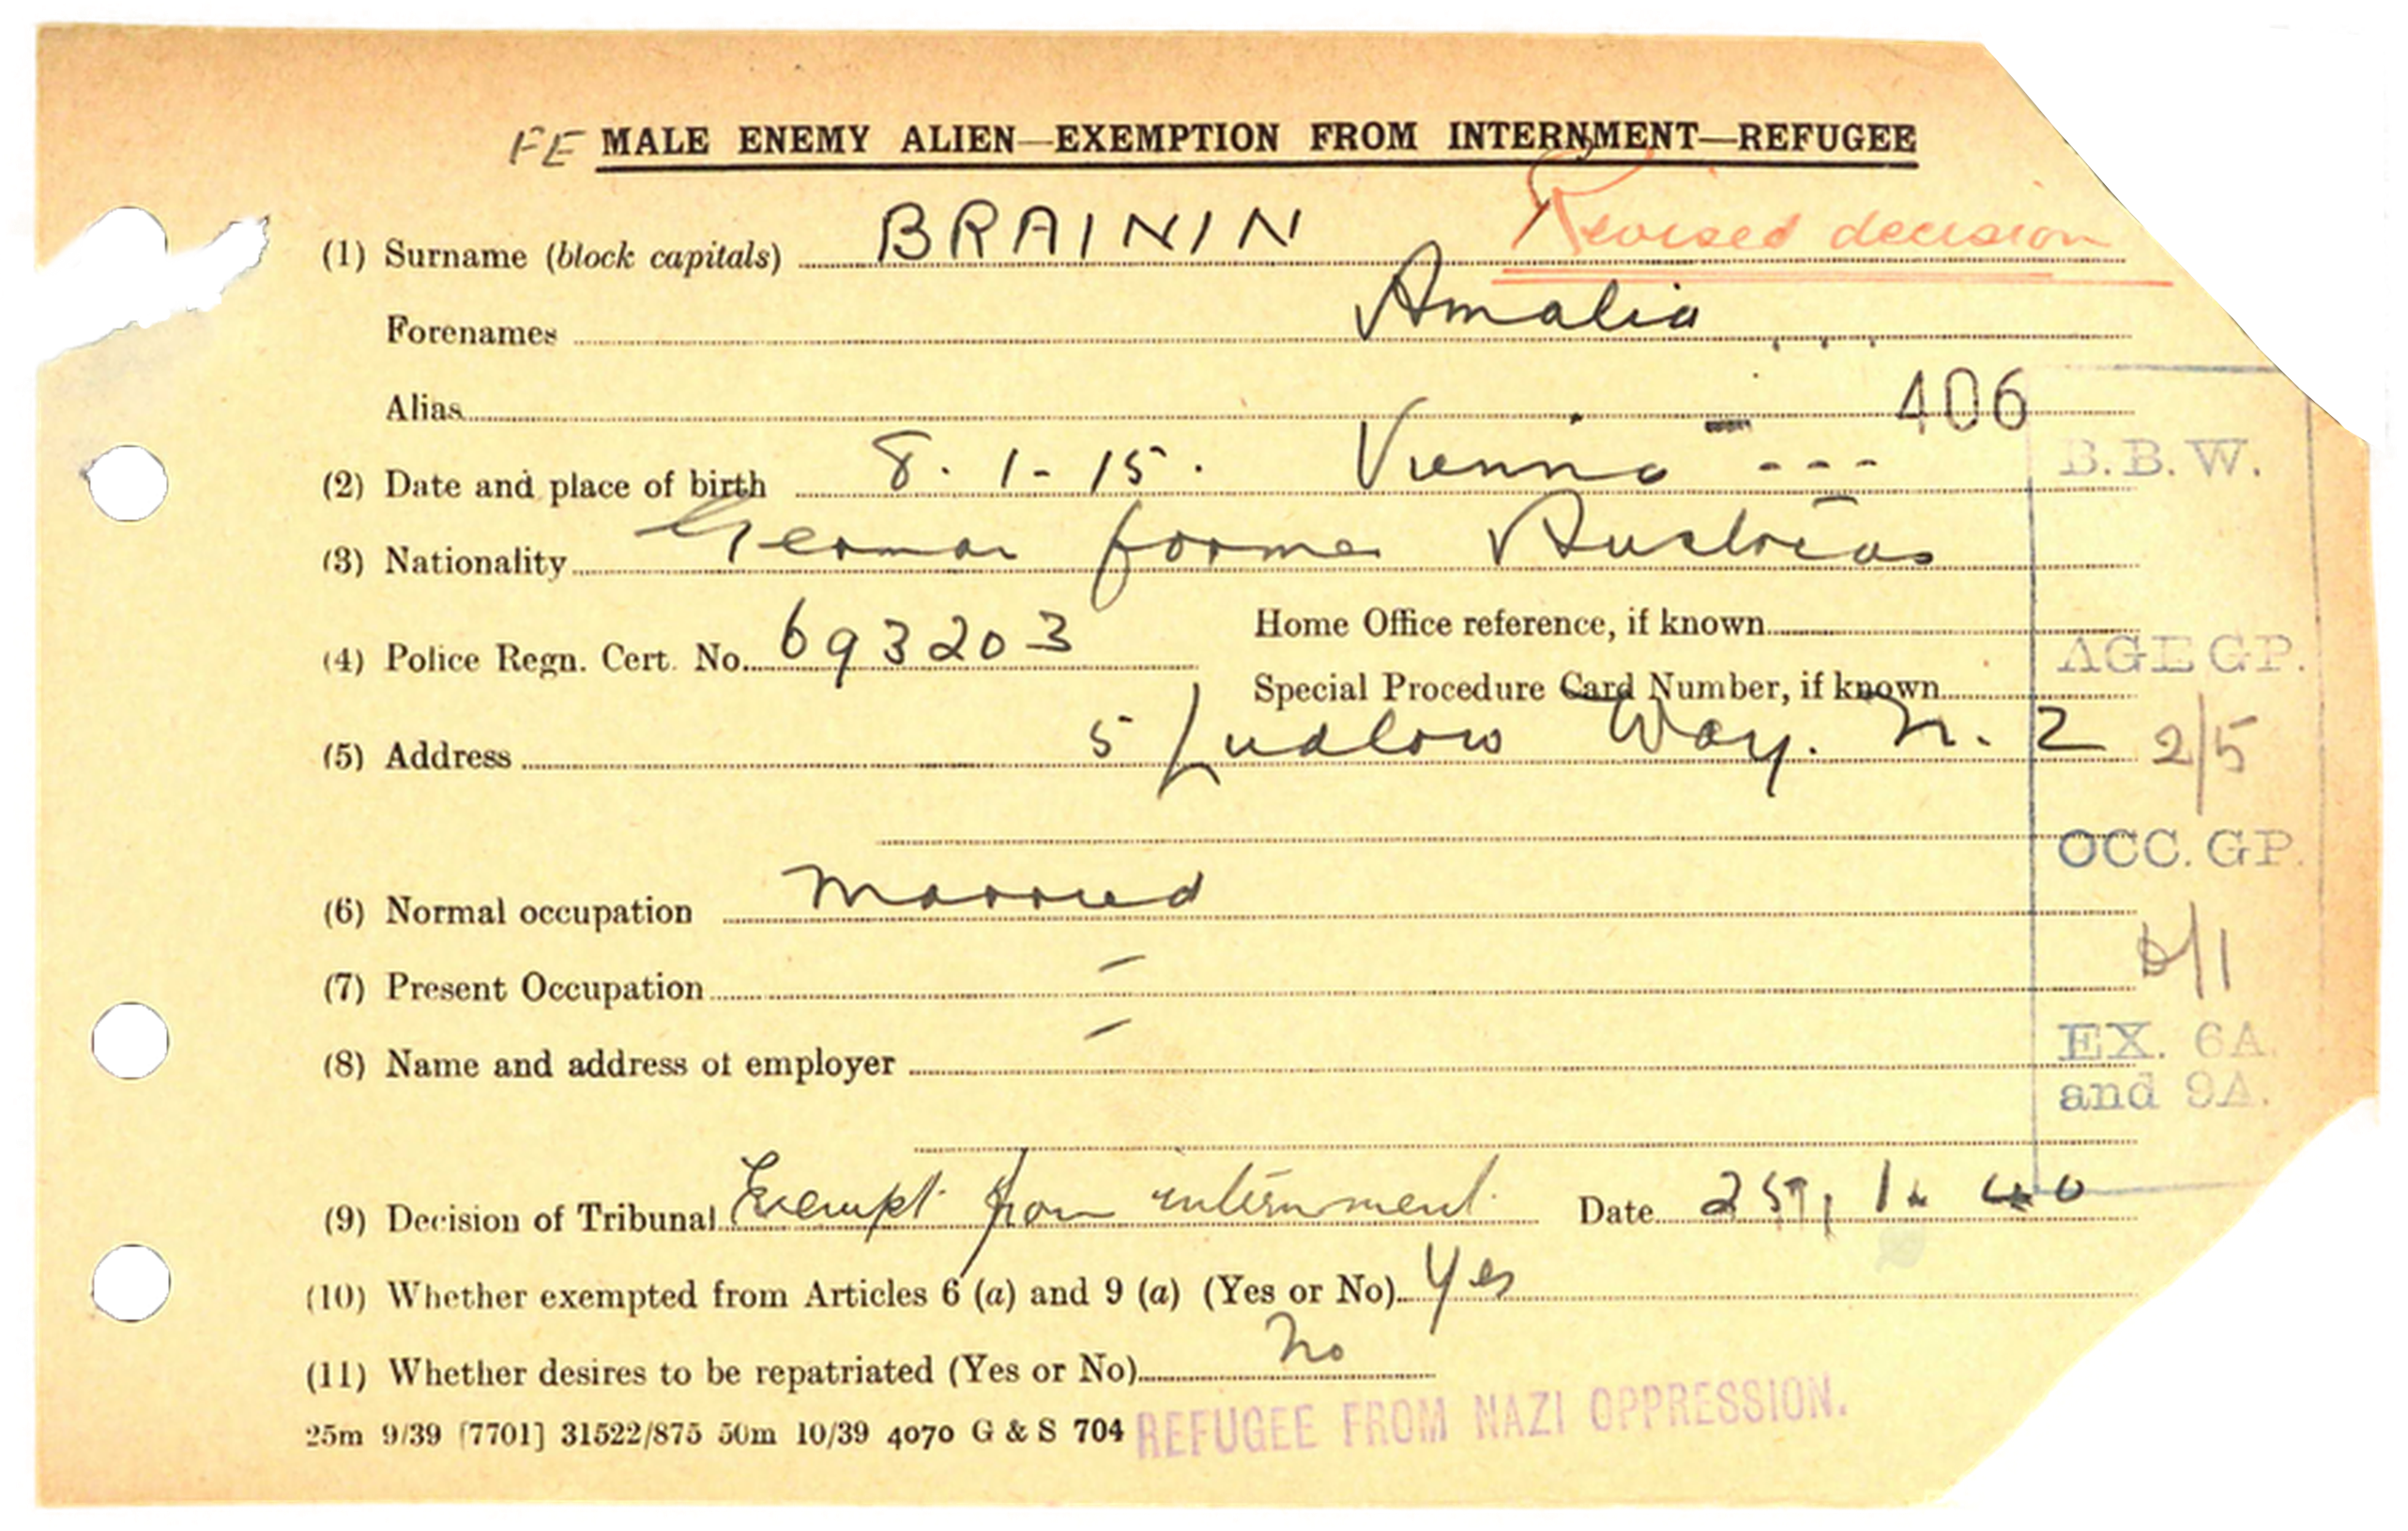 FE MALE ENEMY ALIEN—EXEMPTION FROM INTERNMENT—REFUGEE
Revised decision
(1) Surname (block capitals) BRAININ
Forenames Amalia
Alias 406
(2) Date and place of birth 8. 1 - 15. Vienna ---
B.B.W.
(3) Nationality German former Austrian
(4) Police Regn. Cert. No. 693203
Home Office reference, if known
Special Procedure Card Number, if known
AGE GP.
2/5
(5) Address 5 Ludlow Way. N. 2
OCC. GP.
(6) Normal occupation Married
(7) Present Occupation –
(8) Name and address of employer –
EX. 6A.
and 9A.
(9) Decision of Tribunal Exempt from internment Date 1. 40
(10) Whether exempted from Articles 6 (a) and 9 (a) (Yes or No) Yes
(11) Whether desires to be repatriated (Yes or No) No
25m 9/39 [7701] 31522/875 50m 10/39 4070 G & S 704
REFUGEE FROM NAZI OPPRESSION.